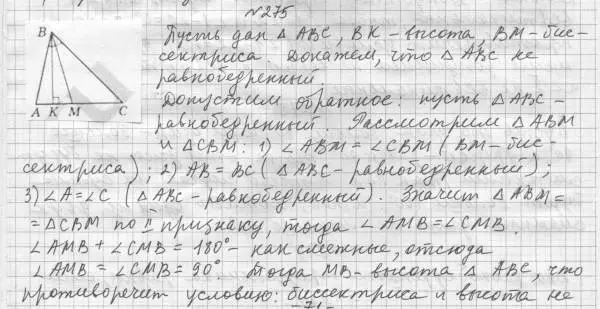 №275
B
A K M C
Пусть дан △ ABC, BK - высота, BM - бис-
сектриса. Докажем, что △ ABC не
равнобедренный.
Допустим обратное: пусть △ ABC -
равнобедренный. Рассмотрим △ ABM
и △CBM: 1) ∠ABM = ∠CBM (BM - бис-
сектриса); 2) AB = BC (△ABC - равнобедренный);
3) ∠A = ∠C (△ABC - равнобедренный). Значит △ABM =
= △CBM по II признаку, тогда ∠AMB = ∠CMB.
∠AMB + ∠CMB = 180° - как смежные, отсюда
∠AMB = ∠CMB = 90°. Тогда MB - высота △ ABC, что
противоречит условию: биссектриса и высота не
-71-